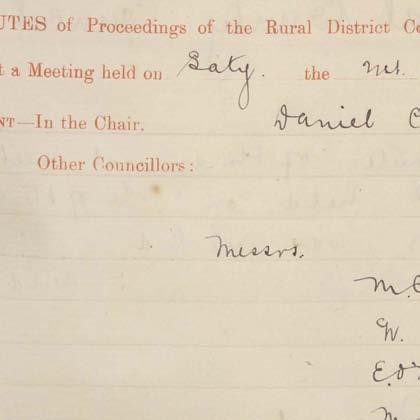 UTES of Proceedings of the Rural District Co
t a Meeting held on Saty. the
NT—In the Chair, Daniel C
Other Councillors:
Messrs.
M.
W.
E.